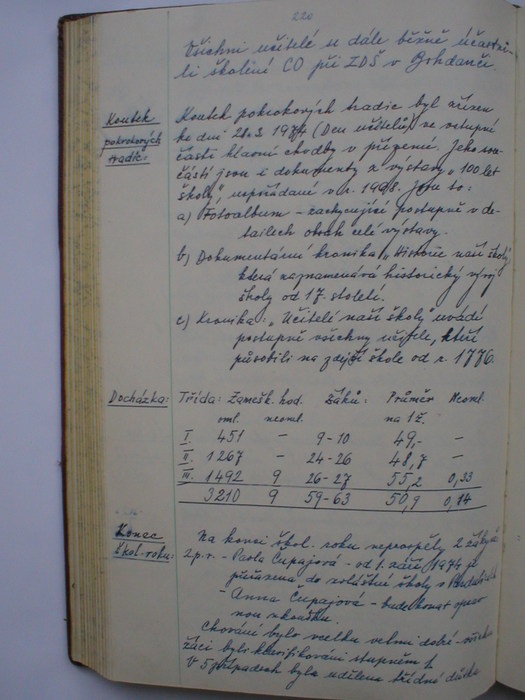 220
Všichni učitelé se dále běžně účastni-
li školení CO při ZDŠ v Bohdanči.
Koutek
pokrokových
tradic:
Koutek pokrokových tradic byl zřízen
ke dni 28.3. 1974 (Den učitelů) ve vstupní
části hlavní chodby v přízemí. Jeho sou-
částí jsou i dokumenty z výstavy "100 let
školy", uspořádané v r. 1968. Jsou to:
a) Fotoalbum - zachycující postupně v de-
tailech obsah celé výstavy.
b) Dokumentární kronika "Historie naší školy"
která zaznamenává historický vývoj
školy od 17. století.
c) Kronika: "Učitelé naší školy" uvádí
postupně všechny učitele, kteří
působili na zdejší škole od r. 1776.
Docházka: Třída: Zamešk. hod. Žáků: Průměr Neoml.
oml. neoml. na 1 ž.
I. 451 - 9-10 49,- -
II. 1267 - 24-26 48,7 -
III. 1492 9 26-27 55,2 0,33
3210 9 59-63 50,9 0,14
Konec
škol. roku:
Na konci škol. roku neprospěly 2 žákyně
2.p.r. - Pavla Čupajová - od 1. září 1974 je
přeřazena do zvláštní školy v
- Anna Čupajová - bude konat oprav-
nou zkoušku.
Chování bylo vcelku velmi dobré - všichni
žáci byli klasifikováni stupněm 1.
V 5 případech byla udělena třídní důtka